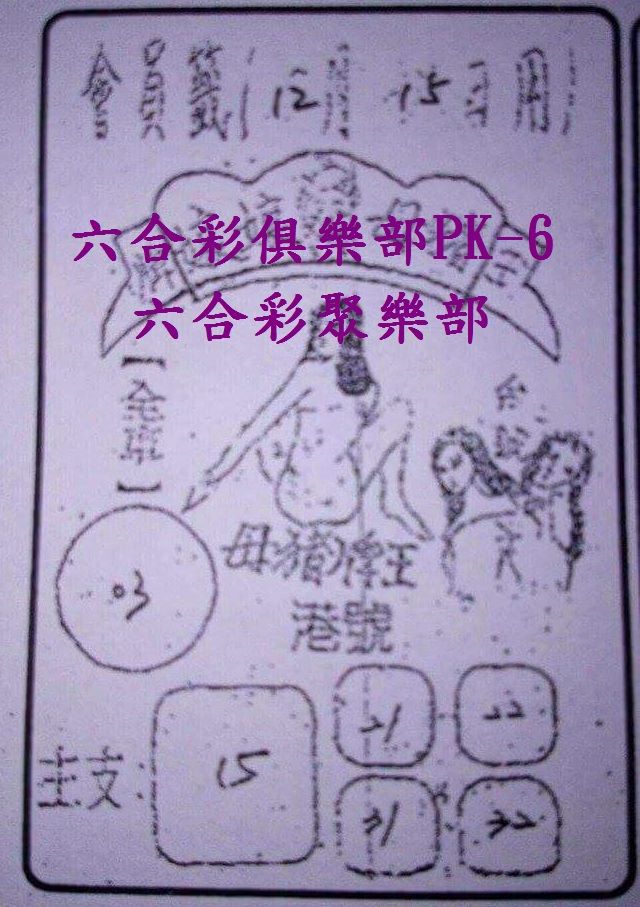 會員籤 12月 15日用
六合彩俱樂部PK-6
六合彩聚樂部
【全車】
03
母豬牌王
港號
主支:
15
21 22
31 32